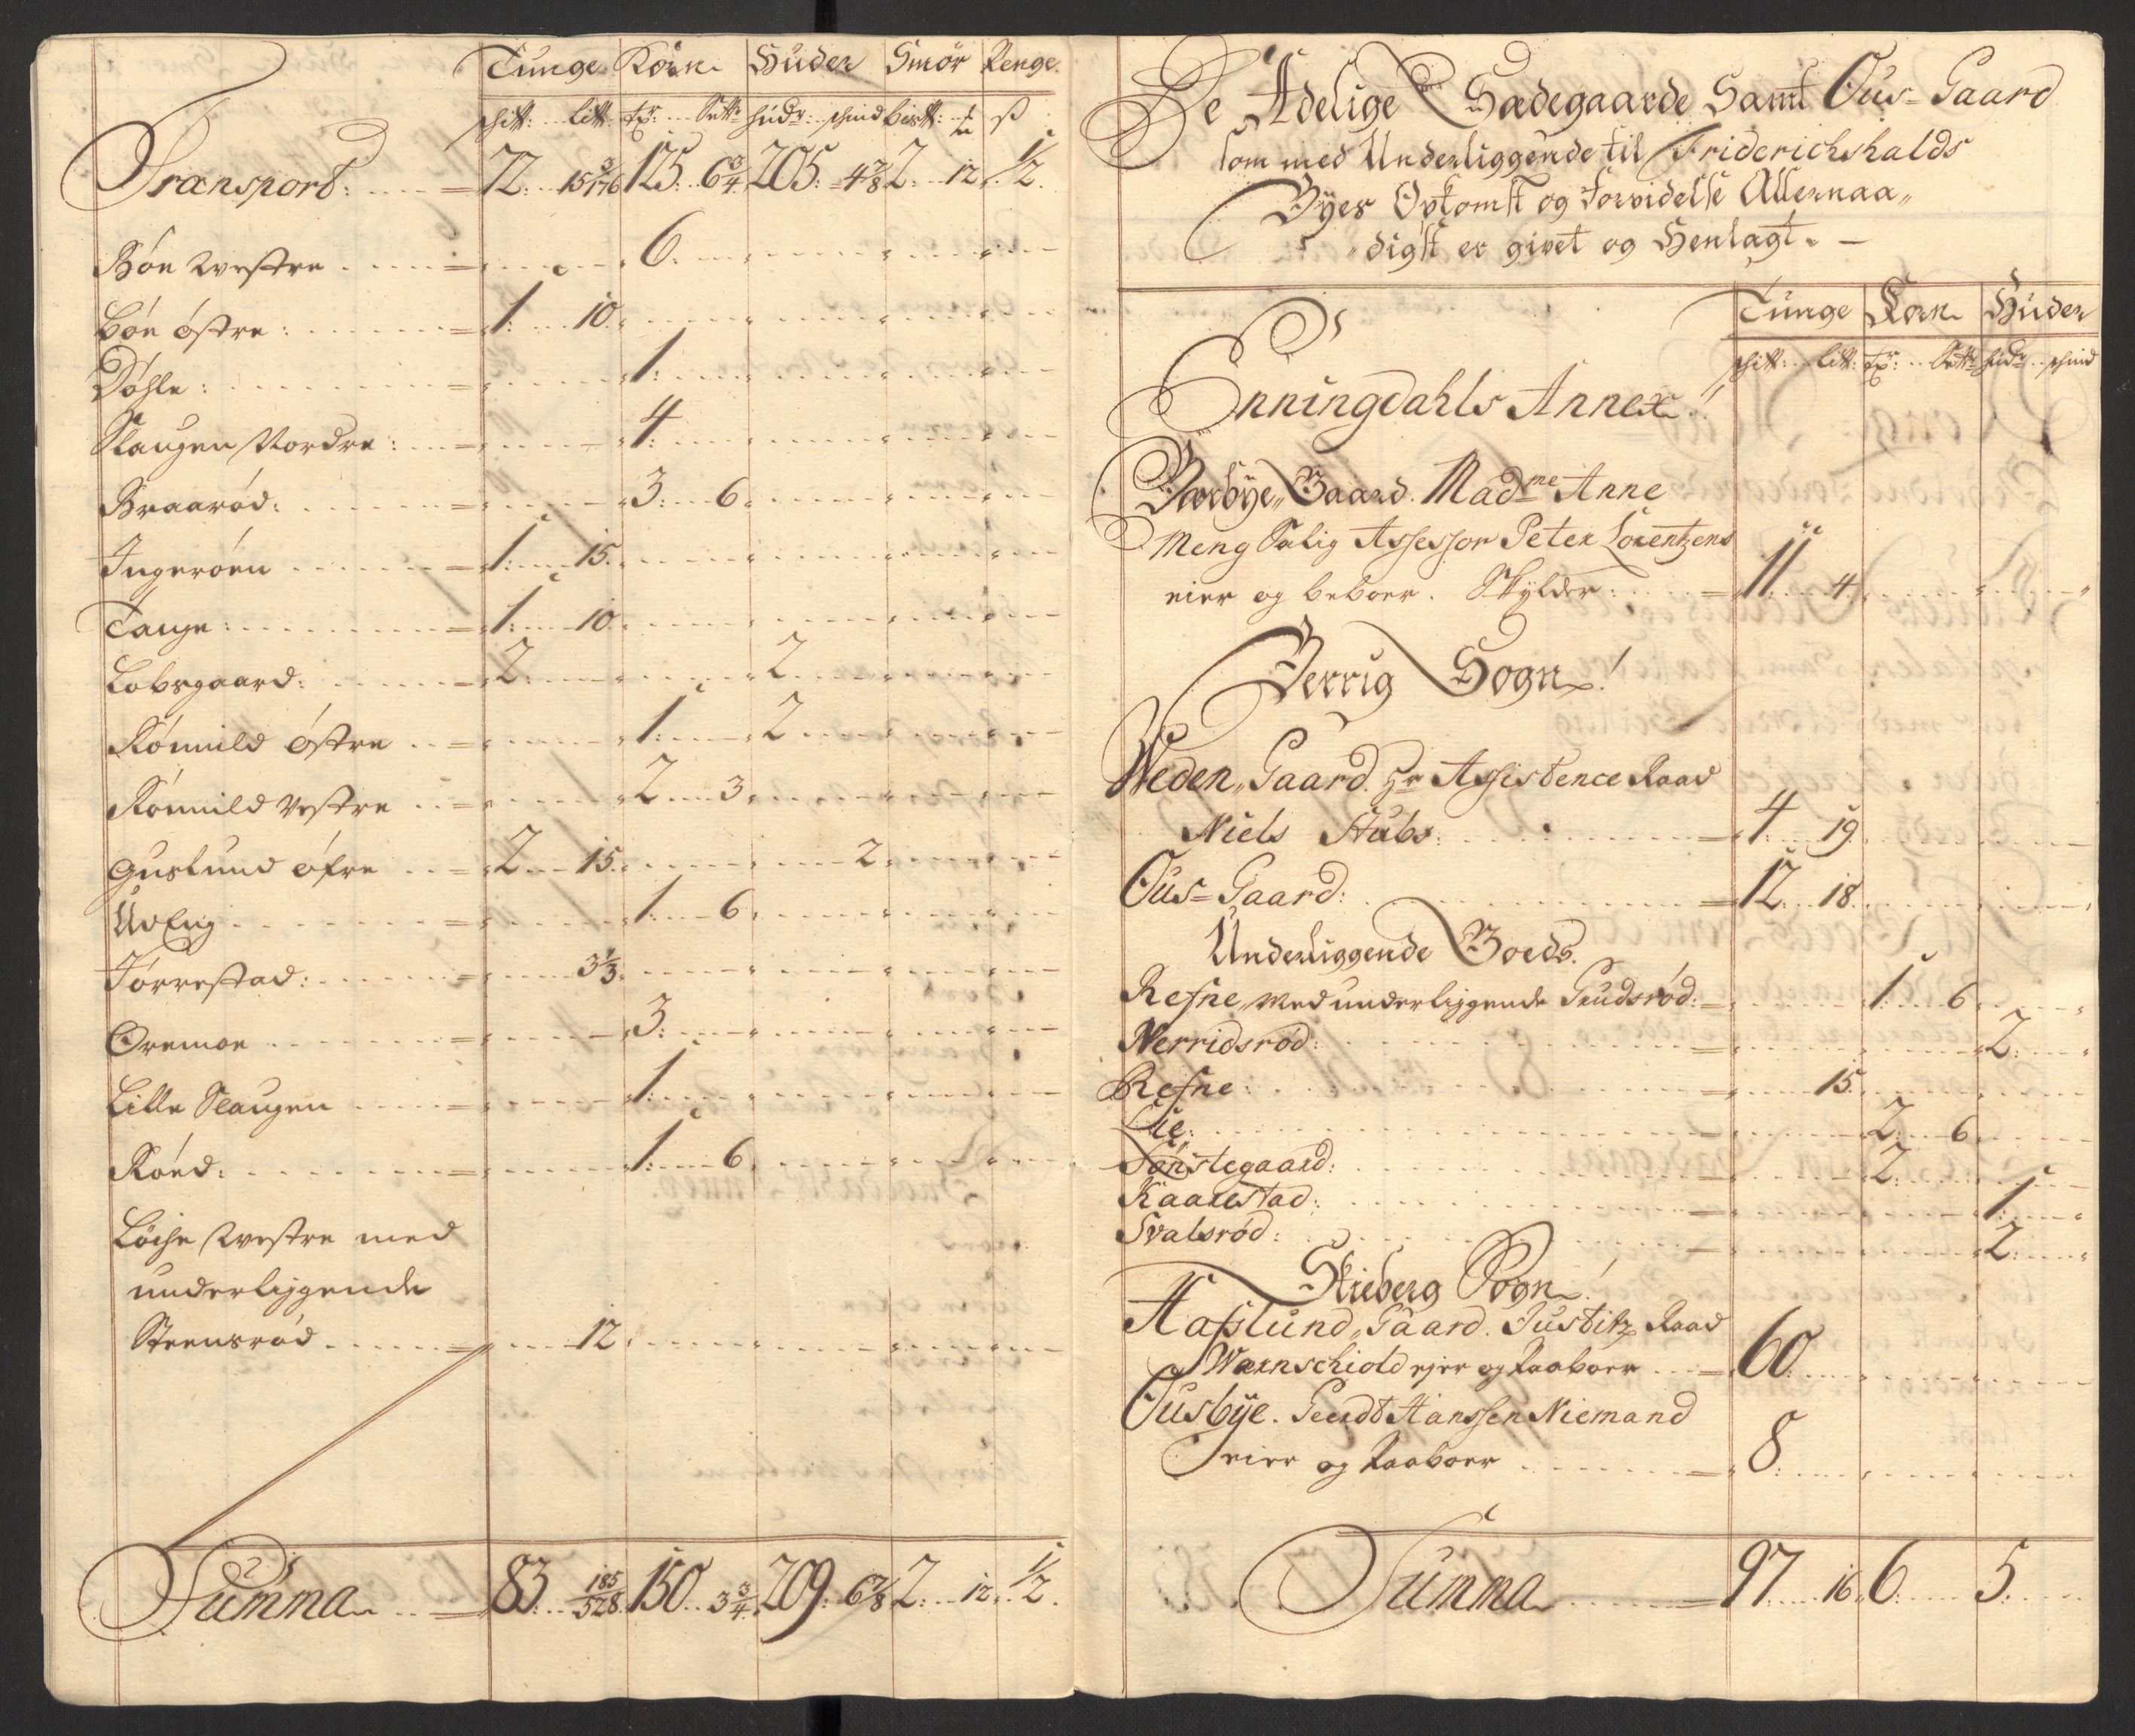 Tunge Korn Huder Smör Penge
schtt: litt: tr: Sett: hud: schind bis tt: ß
Transport: 72 15 3/176 125 6 3/4 205 4 7/8 2 12 1/2
Bön Westre 6
Bön Östre: 1 10
Döhle: 1
Slaugen Nordre: 4
Braaröd: 3 6
Ingeröen 1 15
Tange: 1 10
Lobsgaard: 2 2
Kömmild Östre 1 2
Kömmild Vestre 2 3
Guslund Öfre 2 15 2
Ud Eng 1 6
Torrestad: 3 1/3
Oremoe 3
Lille Slaugen 1
Röed: 1 6
Löche Westre med
underliggende
Steensröd 12
Summa 83 185/528 150 3 3/4 209 6 7/8 2 12 1/2
De Adelige Sædegaarde Samt Ous-Gaard
som med Underliggende til Friderichshalds
Byes Opkomst og Forvidelse Allernaa„
„digst er givet og Henlagt. —
Tunge Korn Huder
schtt: litt: tr: Sett: hud: schind
Enningdahls Annex
Berbye„ Gaard. Madme Anne
Meng Salig Assessor Peter Lorentzens
eier og beboer. Skylder: 11 4
Berrig Sogn!
Weden„ Gaard. Hr Assistence Raad
Niels Stubs: 4 19
Ous=Gaard: 12 18
Underliggende Goeds.
Refne„ med underliggende Gudsröd: 1 6
Nerridsröd: 2
Refne: 15
Lie: 2 6
Tonstegaard: 2
Kaarestad: 1
Svalsröd: 2
Skieberg Sogn!
Haflund„ Gaard. Justitz Raad
Wærnschiold ejer og Paaboer 60
Ousbye. Geerdt Hanssen Niemand
eier og Paaboer 8
Summa 97 16 6 5